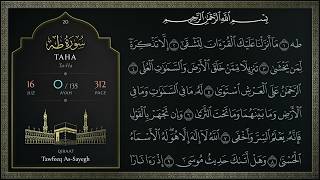 20
سُورَةُ طه
TAHA
Ta-Ha
16 0 / 135 312
JUZ AYAH PAGE
QIRAAT
Tawfeeq As-Sayegh
بِسْمِ ٱللَّهِ ٱلرَّحْمَٰنِ ٱلرَّحِيمِ
طه ١ مَآ أَنزَلْنَا عَلَيْكَ ٱلْقُرْءَانَ لِتَشْقَىٰٓ ٢ إِلَّا تَذْكِرَةً
لِّمَن يَخْشَىٰ ٣ تَنزِيلًا مِّمَّنْ خَلَقَ ٱلْأَرْضَ وَٱلسَّمَٰوَٰتِ ٱلْعُلَى ٤
ٱلرَّحْمَٰنُ عَلَى ٱلْعَرْشِ ٱسْتَوَىٰ ٥ لَهُۥ مَا فِى ٱلسَّمَٰوَٰتِ وَمَا فِى
ٱلْأَرْضِ وَمَا بَيْنَهُمَا وَمَا تَحْتَ ٱلثَّرَىٰ ٦ وَإِن تَجْهَرْ بِٱلْقَوْلِ
فَإِنَّهُۥ يَعْلَمُ ٱلسِّرَّ وَأَخْفَى ٧ ٱللَّهُ لَآ إِلَٰهَ إِلَّا هُوَ لَهُ ٱلْأَسْمَآءُ
ٱلْحُسْنَىٰ ٨ وَهَلْ أَتَىٰكَ حَدِيثُ مُوسَىٰٓ ٩ إِذْ رَءَا نَارًا